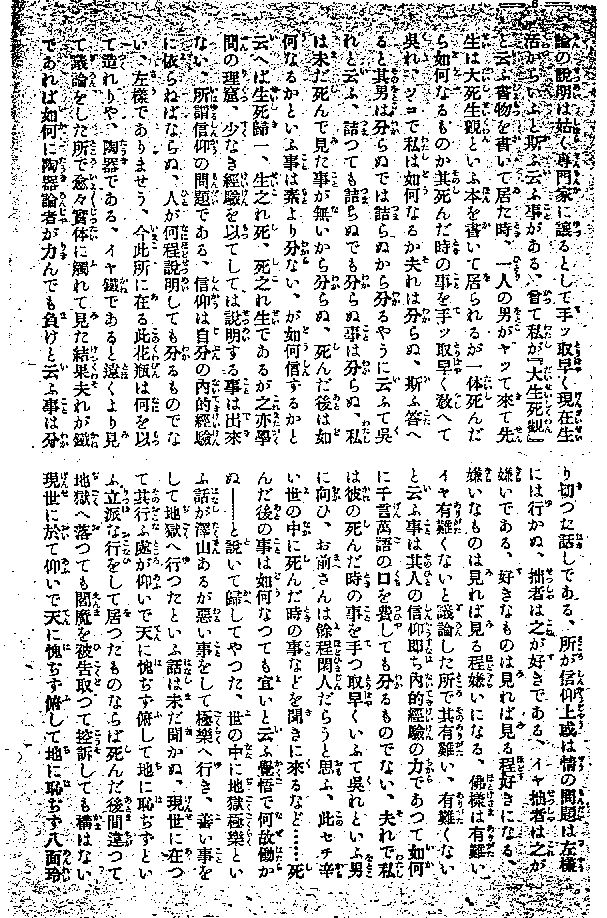 論の說明は姑く專門家に讓るとして手ッ取早く現在生
活からいふと斯ふ云ふ事がある、嘗て私が『大生死觀』
と云ふ書物を書いて居た時、一人の男がヤッて來て先
生は大死生觀といふ本を書いて居られるが一体死んだ
ら如何なるものか其死んだ時の事を手ッ取早く敎へて
吳れ、ソコで私は如何なるか夫れは分らぬ、斯ふ答へ
ると其男は分らぬでは詰らぬから分るやうに云ふて吳
れと云ふ、詰つても詰らぬでも分らぬ事は分らぬ、私
は未だ死んで見た事が無いから分らぬ、死んだ後は如
何なるかといふ事は素より分ない、が如何信するかと
云へば生死歸一、生之れ死、死之れ生であるが之亦學
問の理窟、少なき經驗を以てしては說明する事は出來
ない、所謂信仰の問題である、信仰は自分の內的經驗
に依らねばならぬ、人が何程說明しても分るものでな
い、左樣でありませう、今此所に在る此花瓶は何を以
て造れりや、陶器である、イヤ鐵であると遠くより見
て議論をした所で愈々實体に觸れて見た結果夫れが鐵
であれば如何に陶器論者が力んでも負けと云ふ事は分
り切つた話しである、所が信仰上或は情の問題は左樣
には行かぬ、拙者は之が好きである、イヤ拙者は之が
嫌いである、好きなものは見れば見る程好きになる、
嫌いなものは見れば見る程嫌いになる、佛樣は有難い、
イヤ有難くないと議論した所で其有難い、有難くない
と云ふ事は其人の信仰即ち內的經驗の力であつて如何
に千言萬語の口を費しても分るものでない、夫れで私
は彼の死んだ時の事を手つ取早くいふて吳れといふ男
に向ひ、お前さんは餘程閑人だらうと思ふ、此セチ辛
い世の中に死んだ時の事などを聞きに來るなど……死
んだ後の事は如何なつても宜いと云ふ覺悟で何故働か
ぬ――と說いて歸してやつた、世の中に地獄極樂とい
ふ話が澤山あるが惡い事をして極樂へ行き、善い事を
して地獄へ行つたといふ話は未だ聞かぬ、現世に在つ
て其行ふ處が仰いで天に愧ぢず俯して地に恥ぢずとい
ふ立派な行をして居つたものならば死んだ後間違つて
地獄へ落つても閻魔を被告取つて控訴しても構はない
現世に於て仰いで天に愧ぢず俯して地に恥ぢず八面玲